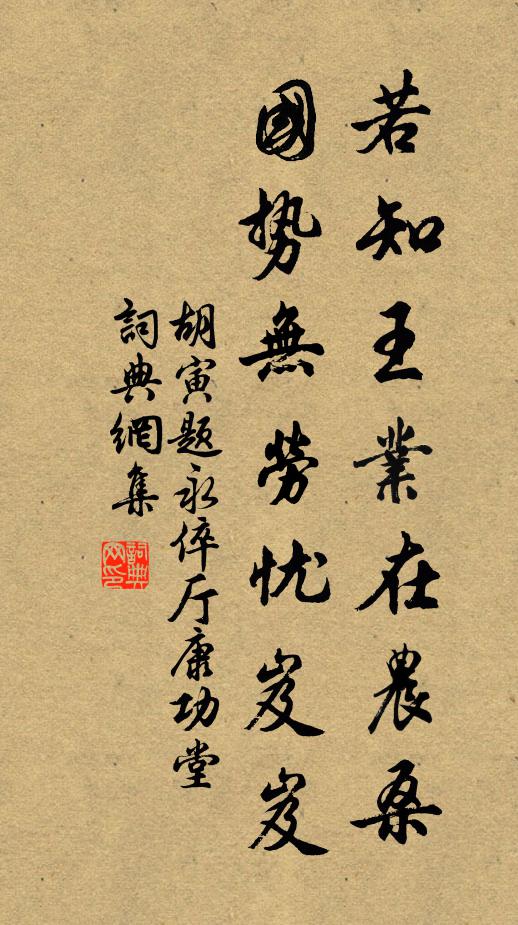 若知王業在農桑
國勢無勞忧岌岌
胡寅题永倅厅康功堂
詞典網集
詞典網印